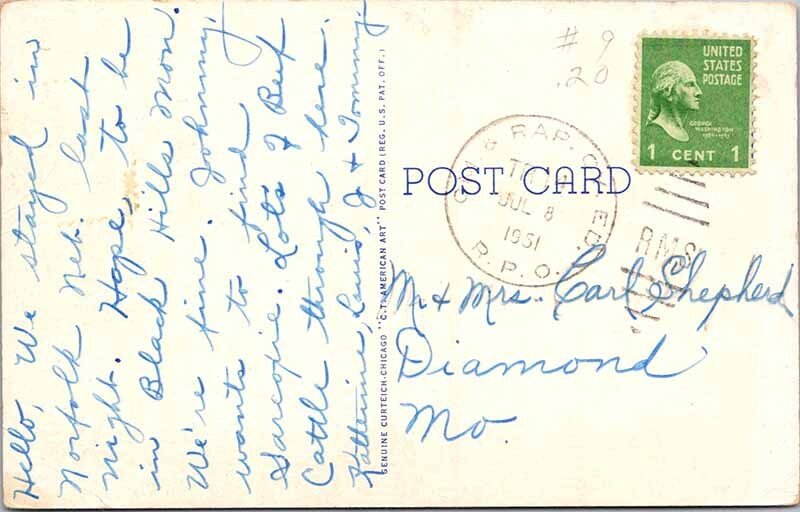 Hello, We stayed in
Norfolk Neb. last
night. Hope, to be
in Black Hills Mon.
We're fine. Johnny,
wants to find
Sarcopie. Lots of Beef
Cattle through here.
Katherine, Louis, J & Tommy.
GENUINE CURTEICH-CHICAGO "C.T. AMERICAN ART" POST CARD (REG. U.S. PAT. OFF.)
# 9
.20
UNITED
STATES
POSTAGE
GEORGE
WASHINGTON
1789-1797
1 CENT 1
& RAP. C
ED.
JUL 8
1951
R.P.O.
RMS
POST CARD
Mr & Mrs. Carl Shepherd
Diamond
Mo.